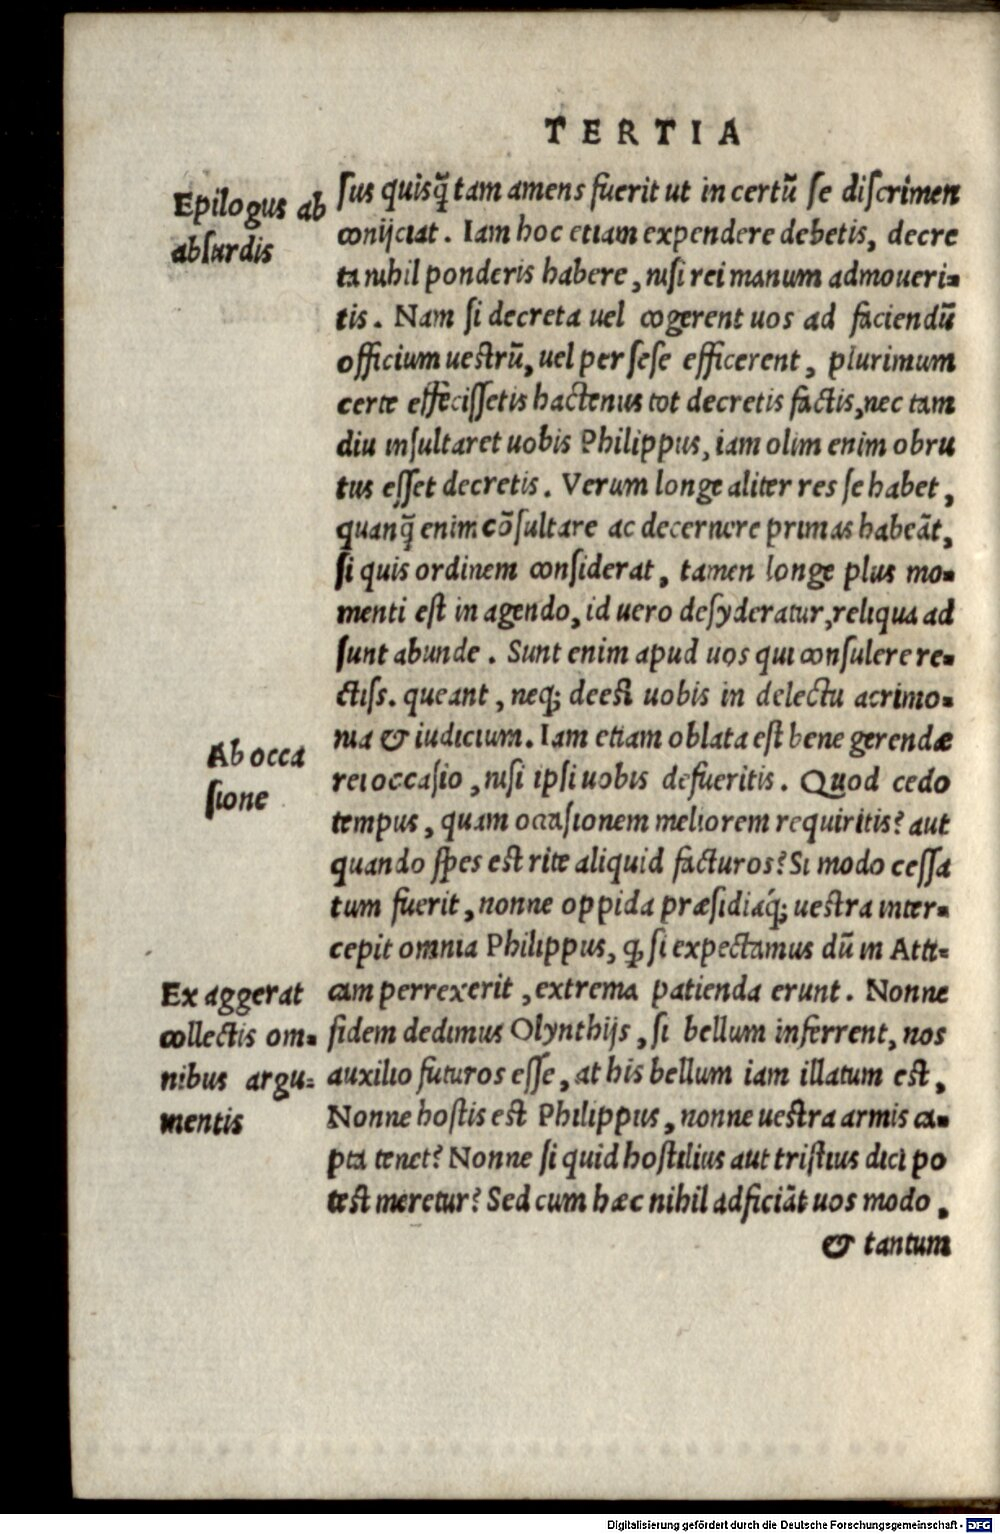 TERTIA
Epilogus ab
absurdis
ſus quisq̃ tam amens fuerit ut in certũ ſe diſcrimen
conijciat. Iam hoc etiam expendere debetis, decre
ta nihil ponderis habere, niſi rei manum admoueri=
tis. Nam ſi decreta uel cogerent uos ad faciendũ
officium ueſtrũ, uel per ſeſe efficerent, plurimum
certe effeciſſetis hactenus tot decretis factis, nec tam
diu inſultaret uobis Philippus, iam olim enim obru
tus eſſet decretis. Verum longe aliter res ſe habet,
quanq̃ enim cõſultare ac decernere primas habeãt,
ſi quis ordinem conſiderat, tamen longe plus mo=
menti eſt in agendo, id uero deſyderatur, reliqua ad
ſunt abunde. Sunt enim apud uos qui conſulere re=
ctiſs. queant, neq; deeſt uobis in delectu acrimo=
nia & iudicium. Iam etiam oblata eſt bene gerendæ
Ab occa
ſione
rei occaſio, niſi ipſi uobis defueritis. Quod cedo
tempus, quam occaſionem meliorem requiritis? aut
quando ſpes eſt rite aliquid facturos? Si modo ceſſa
tum fuerit, nonne oppida præſidiáq; ueſtra inter=
cepit omnia Philippus, q, ſi expectamus dũ in Atti=
Exaggerat
collectis om=
nibus argu=
mentis
cam perrexerit, extrema patienda erunt. Nonne
fidem dedimus Olynthijs, ſi bellum inferrent, nos
auxilio futuros eſſe, at his bellum iam illatum eſt,
Nonne hoſtis eſt Philippus, nonne ueſtra armis ca=
pta tenet? Nonne ſi quid hoſtilius aut triſtius dici po
teſt meretur? Sed cum hæc nihil adficiãt uos modo,
& tantum
Digitalisierung gefördert durch die Deutsche Forschungsgemeinschaft - DFG